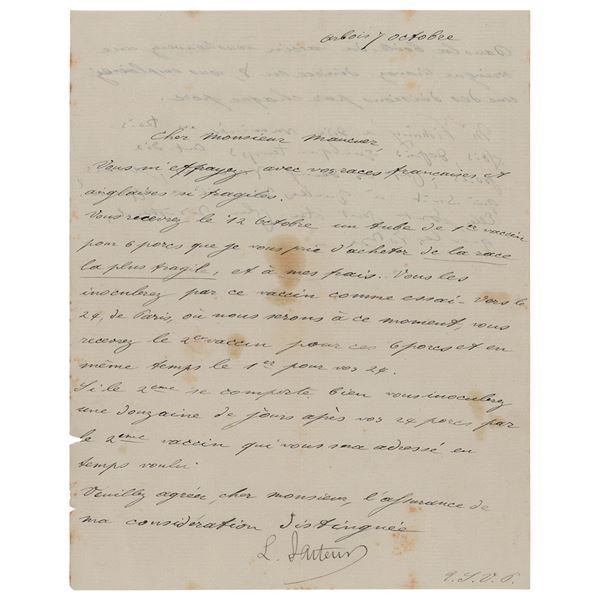 Arbois 7 octobre
Cher monsieur Maucuer,
Vous m'effrayez avec vos races françaises et
anglaises si fragiles.
Vous recevrez le 12 octobre un tube de 1er vaccin
pour 6 porcs que je vous prie d'acheter de la race
la plus fragile, et à mes frais. Vous les
inoculerez par ce vaccin comme essai - Vers le
24, de Paris, où nous serons à ce moment, vous
recevrez le 2e vaccin pour ces 6 porcs et en
même temps le 1er pour vos 24.
Si le 2ème se comporte bien vous inoculerez
une douzaine de jours après vos 24 porcs par
le 2ème vaccin qui vous sera adressé en
temps voulu.
Veuillez agréer, cher monsieur, l'assurance de
ma considération distinguée
L. Pasteur
T.S.V.P.